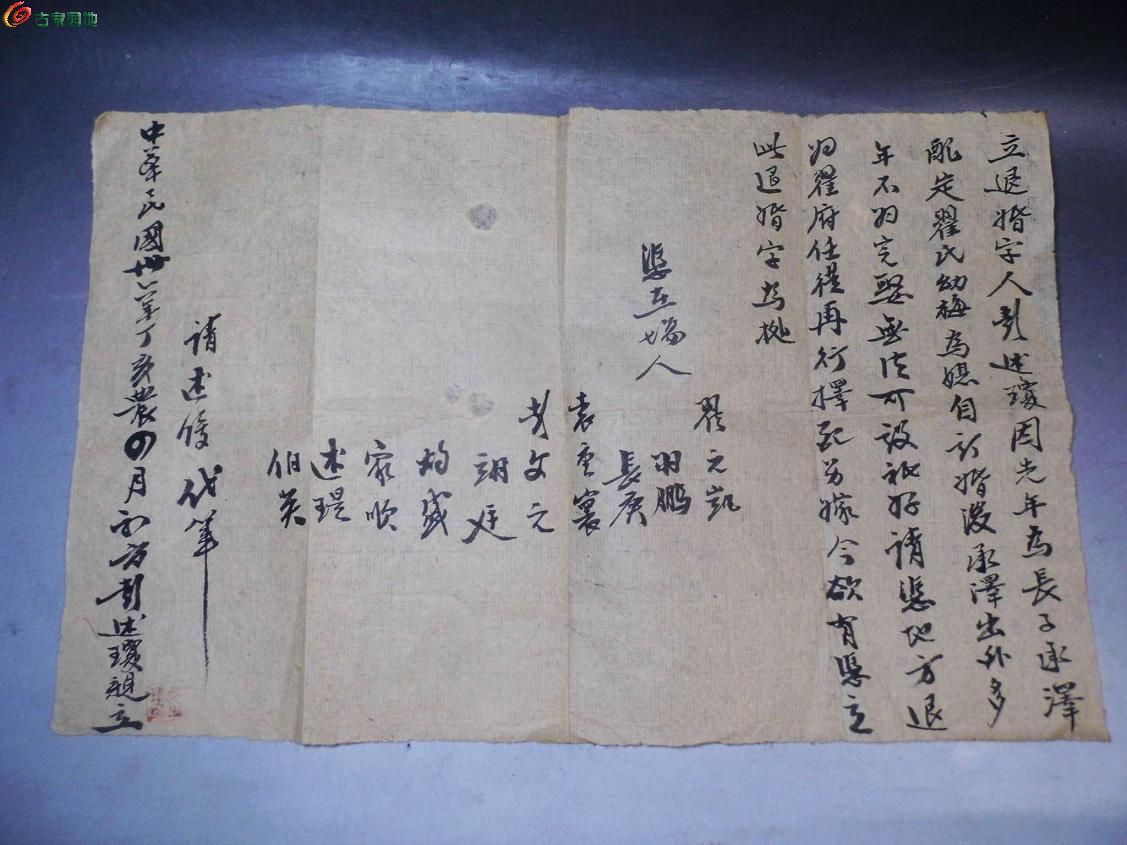 立退婚字人彭述瓊因先年為長子承澤
配定翟氏幼梅為媳自訂婚後承澤出外多
年不歸完娶無法可設祇好請憑地方退
歸翟府任從再行擇配另嫁今欲有憑立
此退婚字為據
憑在場人
翟元凱
羽鵬
長庚
袁重襄
彭文元
翊廷
炳盛
家順
述琨
伯英
請述俊代筆
中華民國卅六年丁亥農四月初方彭述瓊親立
古家园地